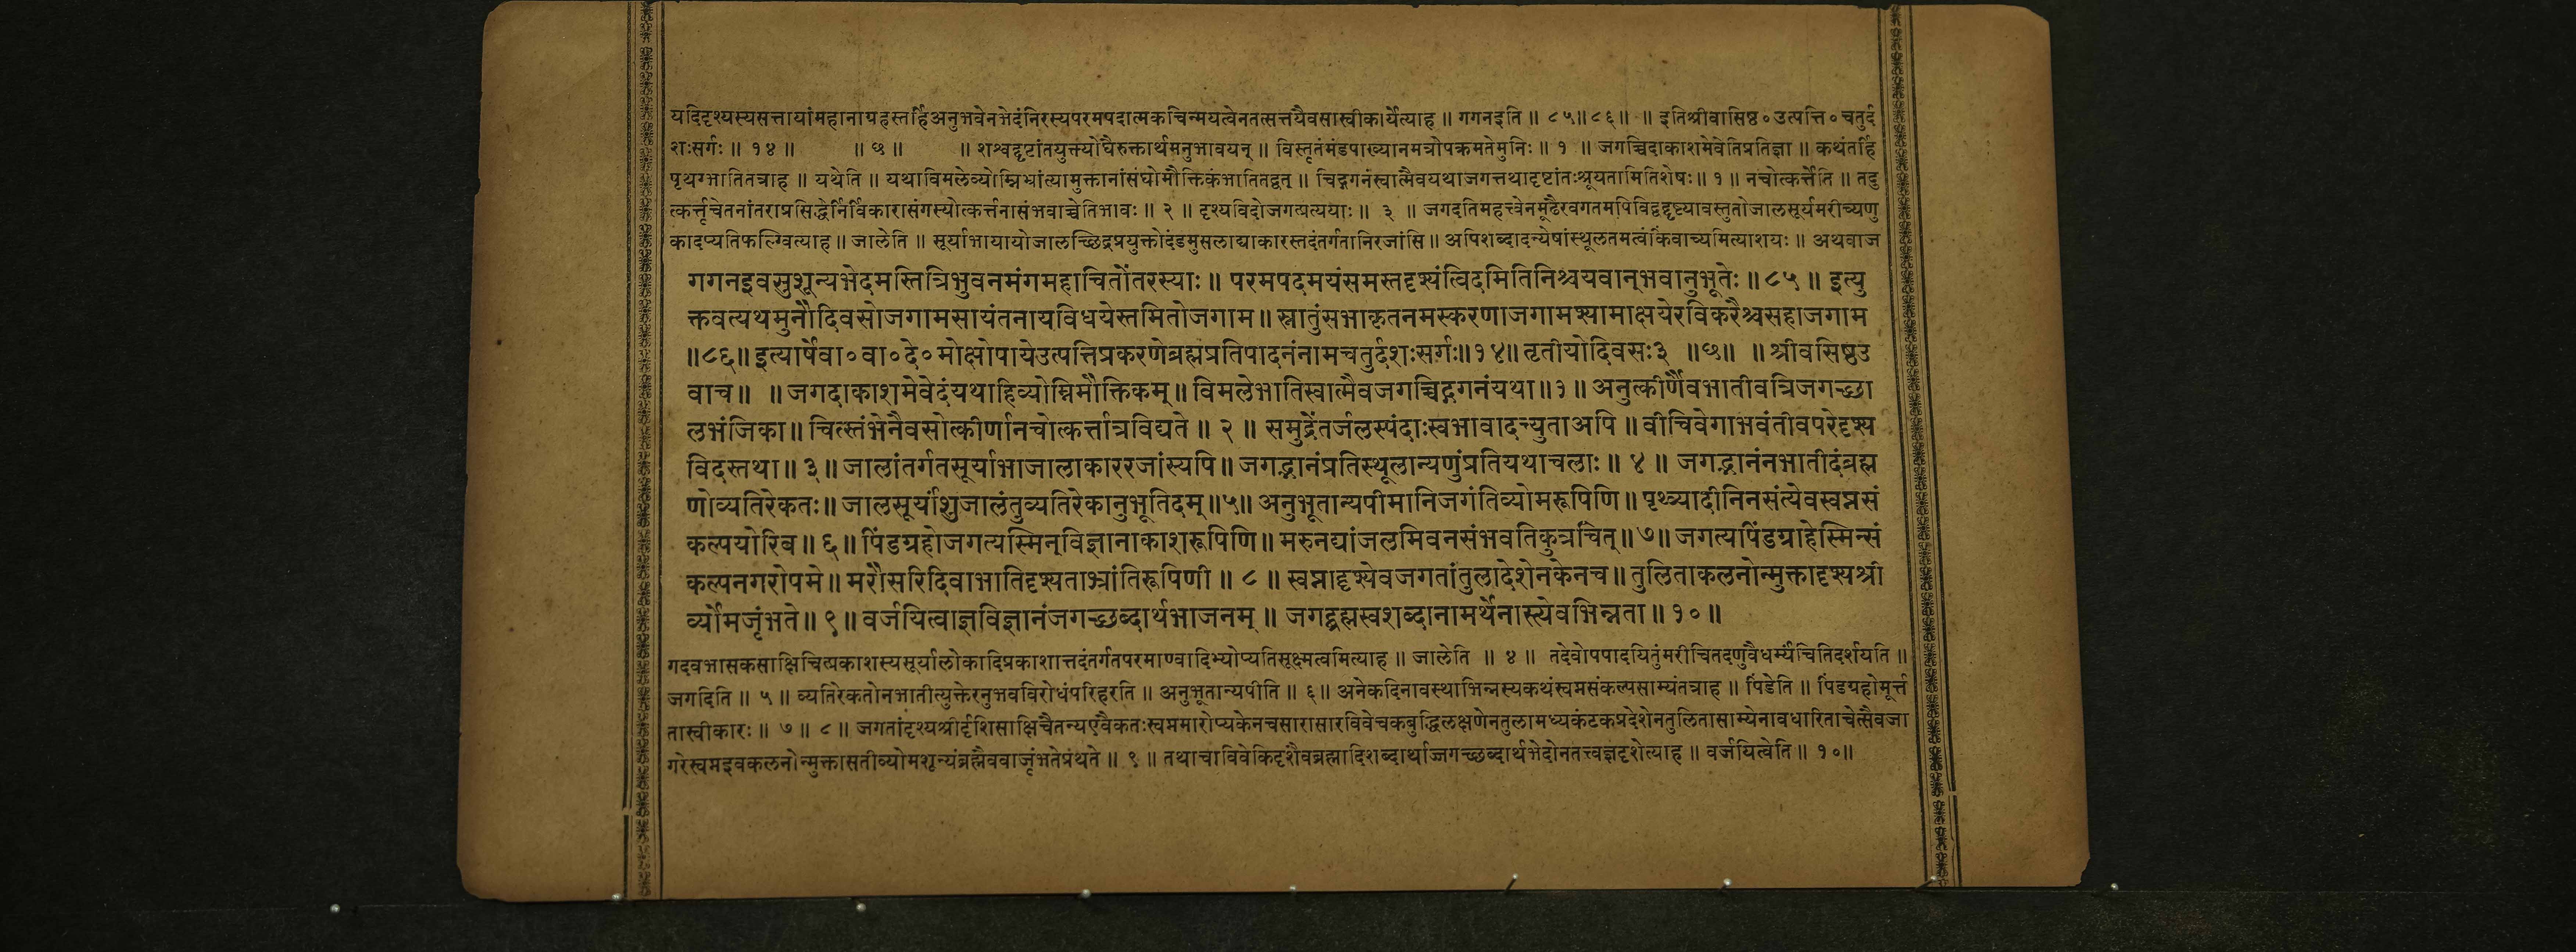 यदिदृश्यस्यसत्तायांमहानायहस्तर्हिअनुभवेनभेदंनिरस्यपरमपदात्मकचिन्मयत्वेनतत्सत्तयैवसास्वीकार्येत्याह ॥ गगनइति ॥ ८५॥८६॥ ॥ इतिश्रीवासिष्ठ०उत्पत्ति०चतुर्द
शःसर्गः ॥ १४ ॥ ॥ छ ॥ ॥ शश्वद्दृष्टांतयुक्त्योघैरुक्तार्थमनुभावयन् ॥ विस्तृतंमंडपाख्यानमत्रोपक्रमतेमुनिः ॥ १ ॥ जगच्चिदाकाशमेवेतिप्रतिज्ञा ॥ कथंतर्हि
पृथग्भातितत्राह ॥ यथेति ॥ यथाविमलेव्योम्निभ्रांत्यामुक्तानांसंघोमौक्तिकंभातितद्वत् ॥ चिद्गगनंस्वात्मैवयथाजगत्तथादृष्टांतःश्रूयतामितिशेषः॥ १ ॥ नचोत्कर्त्तेति ॥ तदु
त्कर्त्तृचेतनांतराप्रसिद्धेर्निर्विकारासंगस्योत्कर्त्तनासंभवाच्चेतिभावः ॥ २ ॥ दृश्यविदोजगत्प्रत्ययाः ॥ ३ ॥ जगदतिमहत्त्वेनमूढैरवगतमपिविद्वद्दृष्ट्यावस्तुतोजालसूर्यमरीच्यणु
कादप्यतिफल्ग्वित्याह ॥ जालेति ॥ सूर्याभायायोजालच्छिद्रप्रयुक्तोदंडमुसलाद्याकारस्तदंतर्गतानिरजांसि ॥ अपिशब्दादन्येषांस्थूलतमत्वंकिंवाच्यमित्याशयः ॥ अथवाज
गगनइवसुशून्यभेदमस्तित्रिभुवनमंगमहाचितोंतरस्याः ॥ परमपदमयंसमस्तदृश्यंत्विदमितिनिश्चयवान्भवानुभूतेः ॥ ८५ ॥ इत्यु
क्तवत्यथमुनौदिवसोजगामसायंतनायविधयेस्तमितोजगाम ॥ स्नातुंसभाकृतनमस्करणाजगामश्यामाक्षयेरविकरैश्चसहाजगाम
॥८६॥ इत्यार्षेवा०वा०दे०मोक्षोपायेउत्पत्तिप्रकरणेब्रह्मप्रतिपादनंनामचतुर्दशःसर्गः॥१४॥ तृतीयोदिवसः३ ॥छ॥ ॥ श्रीवसिष्ठउ
वाच ॥ ॥ जगदाकाशमेवेदंयथाहिव्योम्निमौक्तिकम् ॥ विमलेभातिस्वात्मैवजगच्चिद्गगनंयथा ॥१ ॥ अनुत्कीर्णैवभातीवत्रिजगच्छा
लभंजिका ॥ चित्स्तंभेनैवसोत्कीर्णानचोत्कर्त्तात्रविद्यते ॥ २ ॥ समुद्रेंतर्जलस्पंदाःस्वभावादच्युताअपि ॥ वीचिवेगाभवंतीवपरेदृश्य
विदस्तथा ॥ ३ ॥ जालांतर्गतसूर्याभाजालाकाररजांस्यपि ॥ जगद्भानंप्रतिस्थूलान्यणुंप्रतियथाचलाः ॥ ४ ॥ जगद्भानंनभातीदंब्रह्म
णोव्यतिरेकतः ॥ जालसूर्यांशुजालंतुव्यतिरेकानुभूतिदम् ॥५॥ अनुभूतान्यपीमानिजगंतिव्योमरूपिणि ॥ पृथ्व्यादीनिनसंत्येवस्वप्नसं
कल्पयोरिव ॥ ६ ॥ पिंडग्रहोजगत्यस्मिन्विज्ञानाकाशरूपिणि ॥ मरुनद्यांजलमिवनसंभवतिकुत्रचित् ॥ ७॥ जगत्यपिंडग्राहेस्मिन्सं
कल्पनगरोपमे ॥ मरौसरिदिवाभातिदृश्यताभ्रांतिरूपिणी ॥ ८ ॥ स्वप्नादृश्येवजगतांतुलादेशेनकेनच ॥ तुलिताकलनोन्मुक्तादृश्यश्री
र्व्योमजृंभते ॥ ९ ॥ वर्जयित्वाज्ञविज्ञानंजगच्छब्दार्थभाजनम् ॥ जगद्ब्रह्मस्वशब्दानामर्थेनास्त्येवभिन्नता ॥ १० ॥
गदवभासकसाक्षिचित्प्रकाशस्यसूर्यालोकादिप्रकाशात्तदंतर्गतपरमाण्वादिभ्योप्यतिसूक्ष्मत्वमित्याह ॥ जालेति ॥ ४ ॥ तदेवोपपादयितुंमरीचितदणुवैधर्म्यंचितिदर्शयति ॥
जगदिति ॥ ५ ॥ व्यतिरेकतोनभातीत्युक्तेरनुभवविरोधंपरिहरति ॥ अनुभूतान्यपीति ॥ ६॥ अनेकदिनावस्थाभिन्नस्यकथंस्वप्नसंकल्पसाम्यंतत्राह ॥ पिंडेति ॥ पिंडग्रहोमूर्त्त
तास्वीकारः ॥ ७ ॥ ८ ॥ जगतांदृश्यश्रीर्दृशिसाक्षिचैतन्यएवैकतःस्वप्नमारोप्यकेनचसारासारविवेचकबुद्धिलक्षणेनतुलामध्यकंटकप्रदेशेनतुलितासाम्येनावधारिताचेत्सैवजा
गरेस्वप्नइवकलनोन्मुक्तासतीव्योमशून्यंब्रह्मैववाजृंभतेप्रथते ॥ ९ ॥ तथाचाविवेकिदृशैवब्रह्मादिशब्दार्थाज्जगच्छब्दार्थभेदोनतत्त्वज्ञदृशेत्याह ॥ वर्जयित्वेति ॥ १०॥